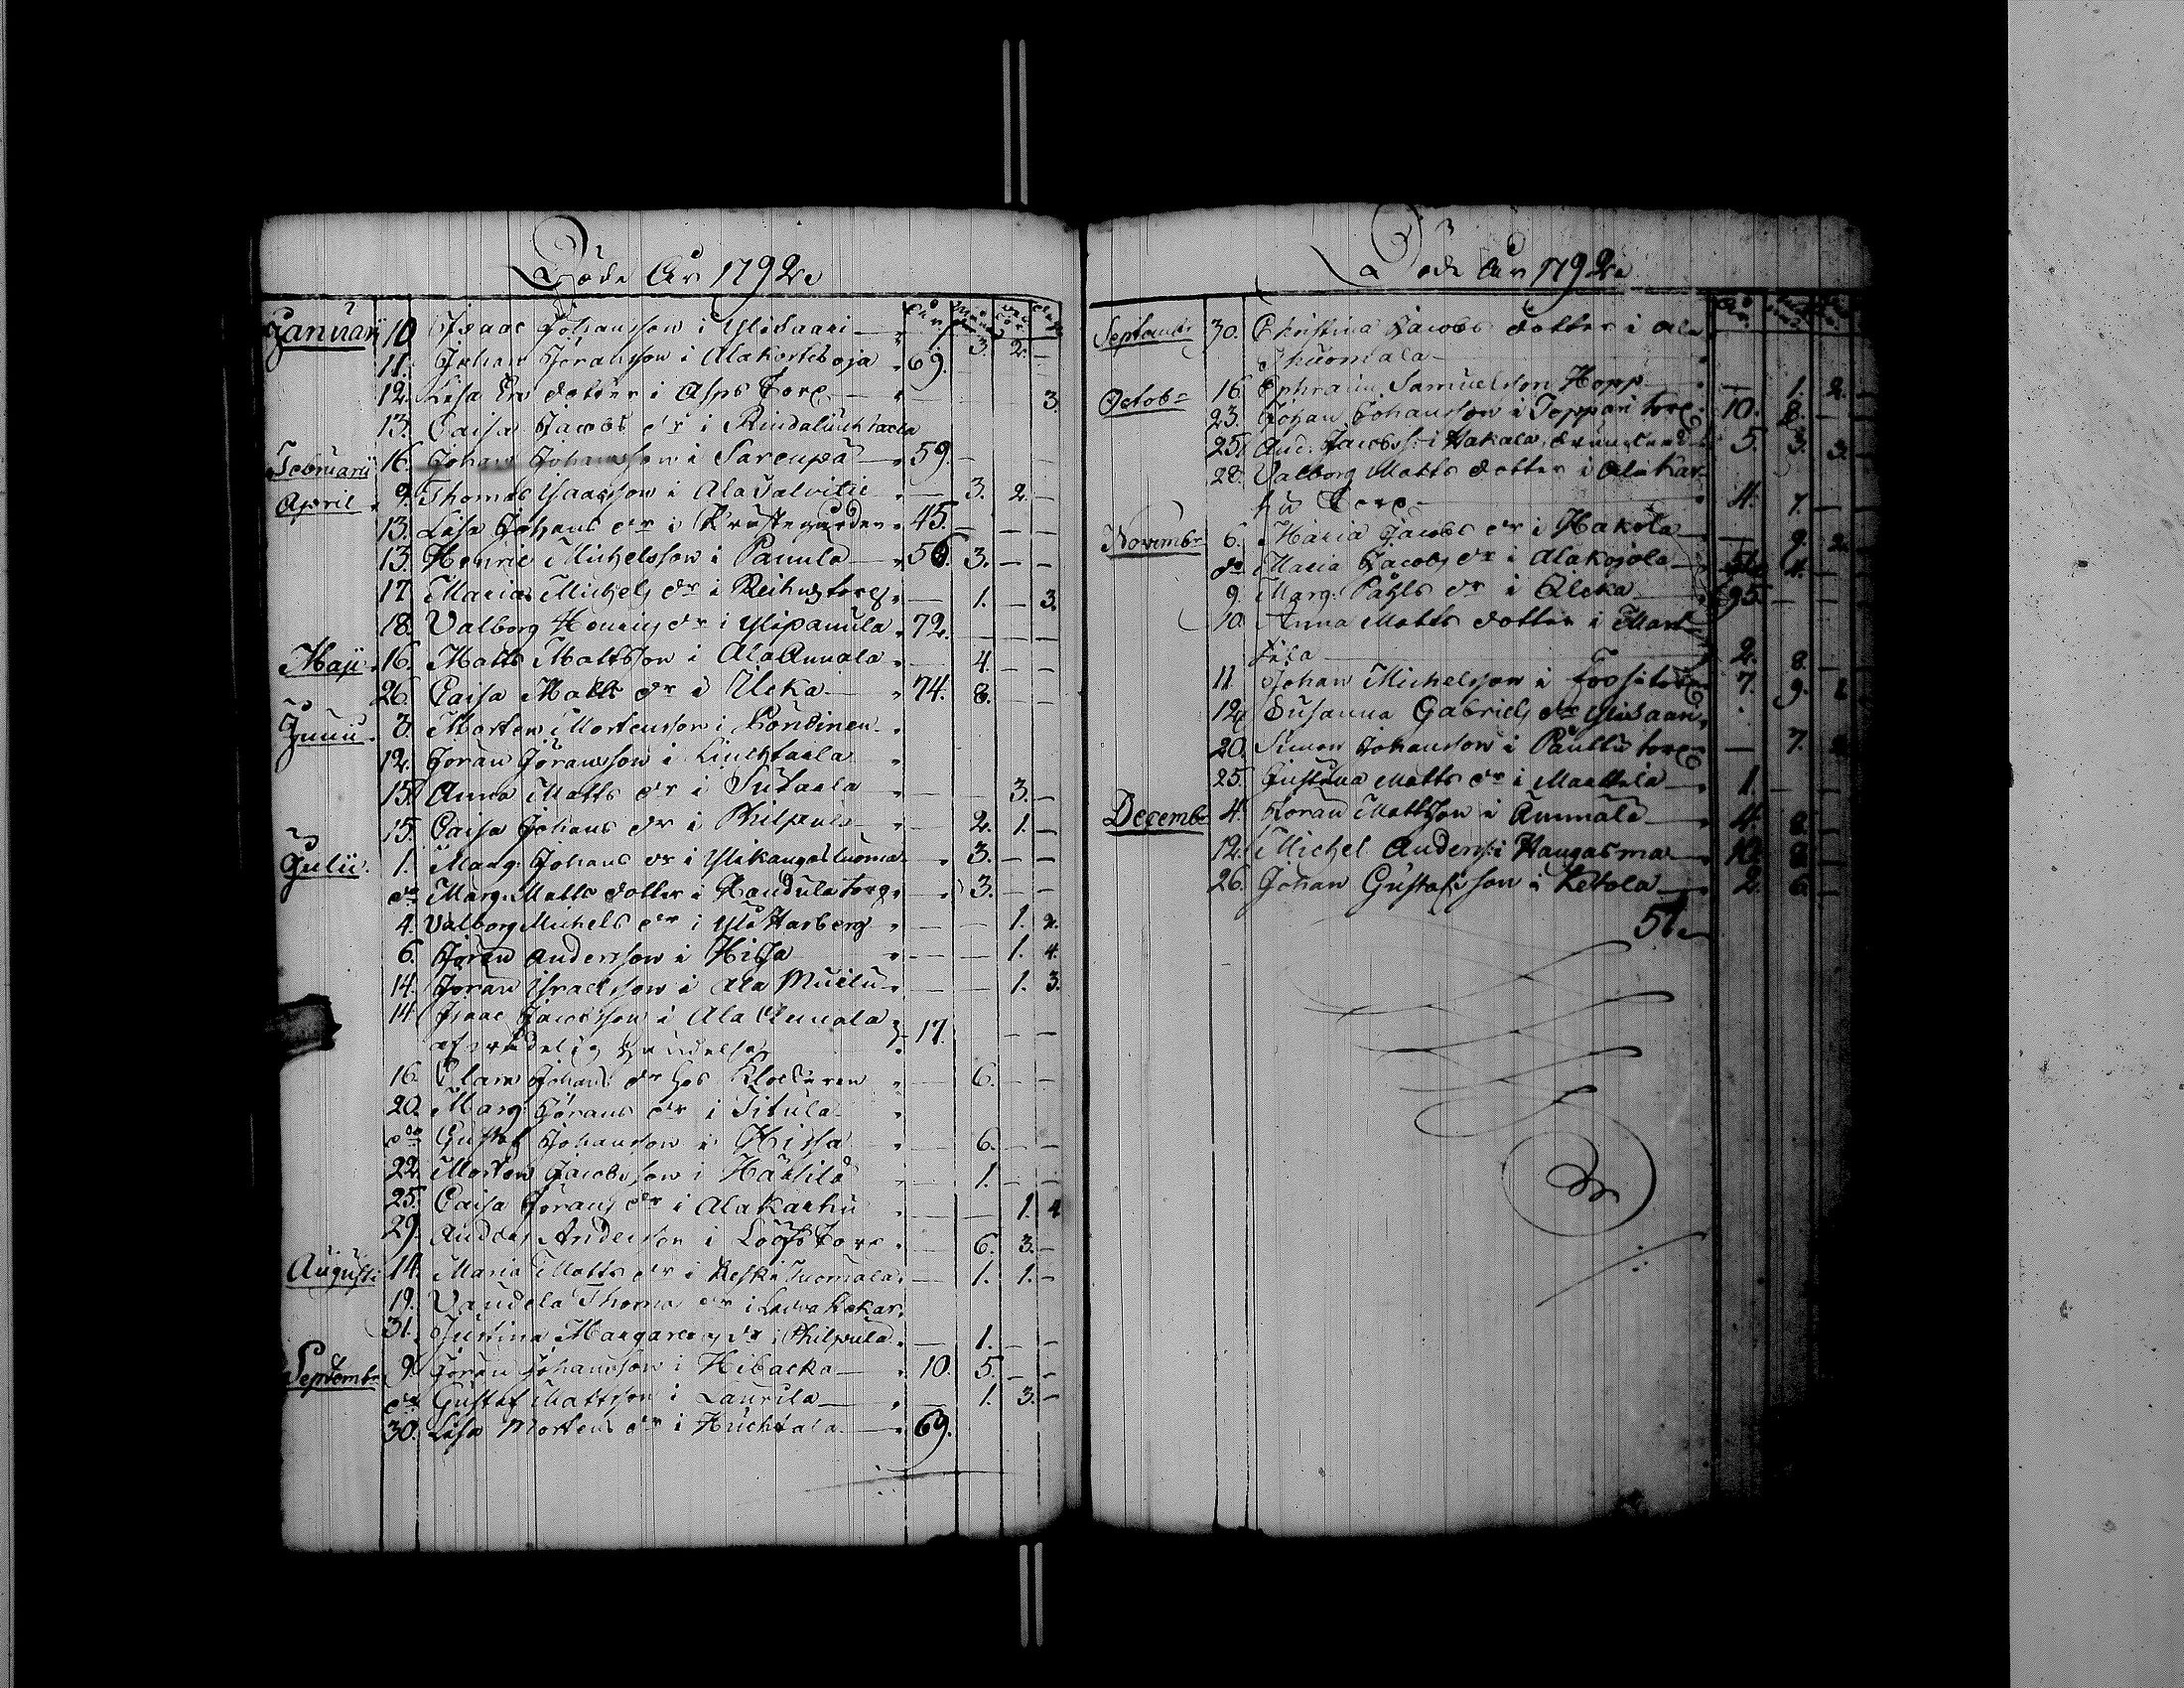 Döde År 1792
År Mån. Vec. Dag.
Januarii 10. Isaac Johansson i Ylisaari — 3. 2. —
11. Johan Jöransson i Alakortesoja 69.
12. Lisa Er. dotter i Asps Torp — 3.
13. Caisa Jacobs dr i Rindaluuhtaala
Februarii 16. Johan Johansson i Sarenpää — 59. —
April 9. Thomas Isaacsson i Ala Salvitie — 3. 2. —
13. Lisa Johans dr i Prustegården 45. — — —
13. Henric Michelsson i Panula — 56. 3. — —
17. Maria Michels dr i torp — 1. — 3.
18. Valborg Henrics dr i Ylipanula 72. — — —
Maji 16. Matts Mattsson i Ala Annala — 4. — —
26. Caisa Matts dr i Ucka — 74. 8. — —
Junii 3. Morten Mortensson i Pontinen
12. Jöran Jöransson i Luuhtaala
15. Anna Matts dr i Sutaala — — 3. —
15. Caisa Johans dr i Philpula — 2. 1. —
Julii 1. Marg. Johans dr i Ylikangasluoma — 3. — —
do Marg. Matts dotter i Randula torp — 3. — —
4. Valborg Michels dr i Yli Harberg — — 1. 2.
6. Jöran Andersson i Hissa — — 1. 4.
14. Jöran Israelsson i Ala Muilu — — 1. 3.
14. Isaac Jacobsson i Ala Annala
af vådelig händelse 17. — —
16. Clara Johans dr hos Klockaren — 6. — —
20. Marg. Jörans dr i Titula
do Gustaf Johansson i Hissa 6. — —
22. Morten Jacobsson i Hätilä 1. — —
25. Caisa Jörans dr i Alakarhu — 1. 4
29. Anders Andersson i Löfs Torp — 6. 3. —
Augusti 14. Maria Matts dr i Keski Tuomala — 1. 1. —
19. Vandela Thoma dr i
31. Justina Margareta dr i Philpula — 1. — —
Septembr 9. Jöran Johansson i Hibacka — 10. 5. — —
do Gustaf Mattsson i Laurila — 1. 3. —
30. Lisa Mortens dr i Huchtala — 69.
Döde År 1792
Septembr 30. Christina Jacobs dotter i Ala
Thuomala
Octobr 16. Ephraim Samuelsson Hopp — 1. 2. —
23. Johan Johansson i Toppari torp 10. 8. — —
25. And. Jacobss. i Hakala, drunknad 5. 3. 3. —
28. Valborg Matts dotter i Ala Kar-
hu Torp — 4. 7. — —
Novembr 6. Maria Jacobs dr i Hakola — 9. 2. —
do Maria Jacobs dr i Alakojola — 4. —
9. Marg. Påhls dr i Ucka — 95. — — —
10. Anna Matts dotter i Mart-
tila — 2. 8. —
11. Johan Michelsson i torp 7. 9.
12. Susanna Gabriels dr Ylisaari
20. Simon Johansson i torp — 7.
25. Justina Matts dr i Marttila — 1. — —
Decembr 4. Jöran Mattsson i Annala — 4. 8. —
12. Michel Anderss. i Kangasmaa — 10. 8. —
26. Johan Gustafsson i Ketola — 2. 6. —
51.